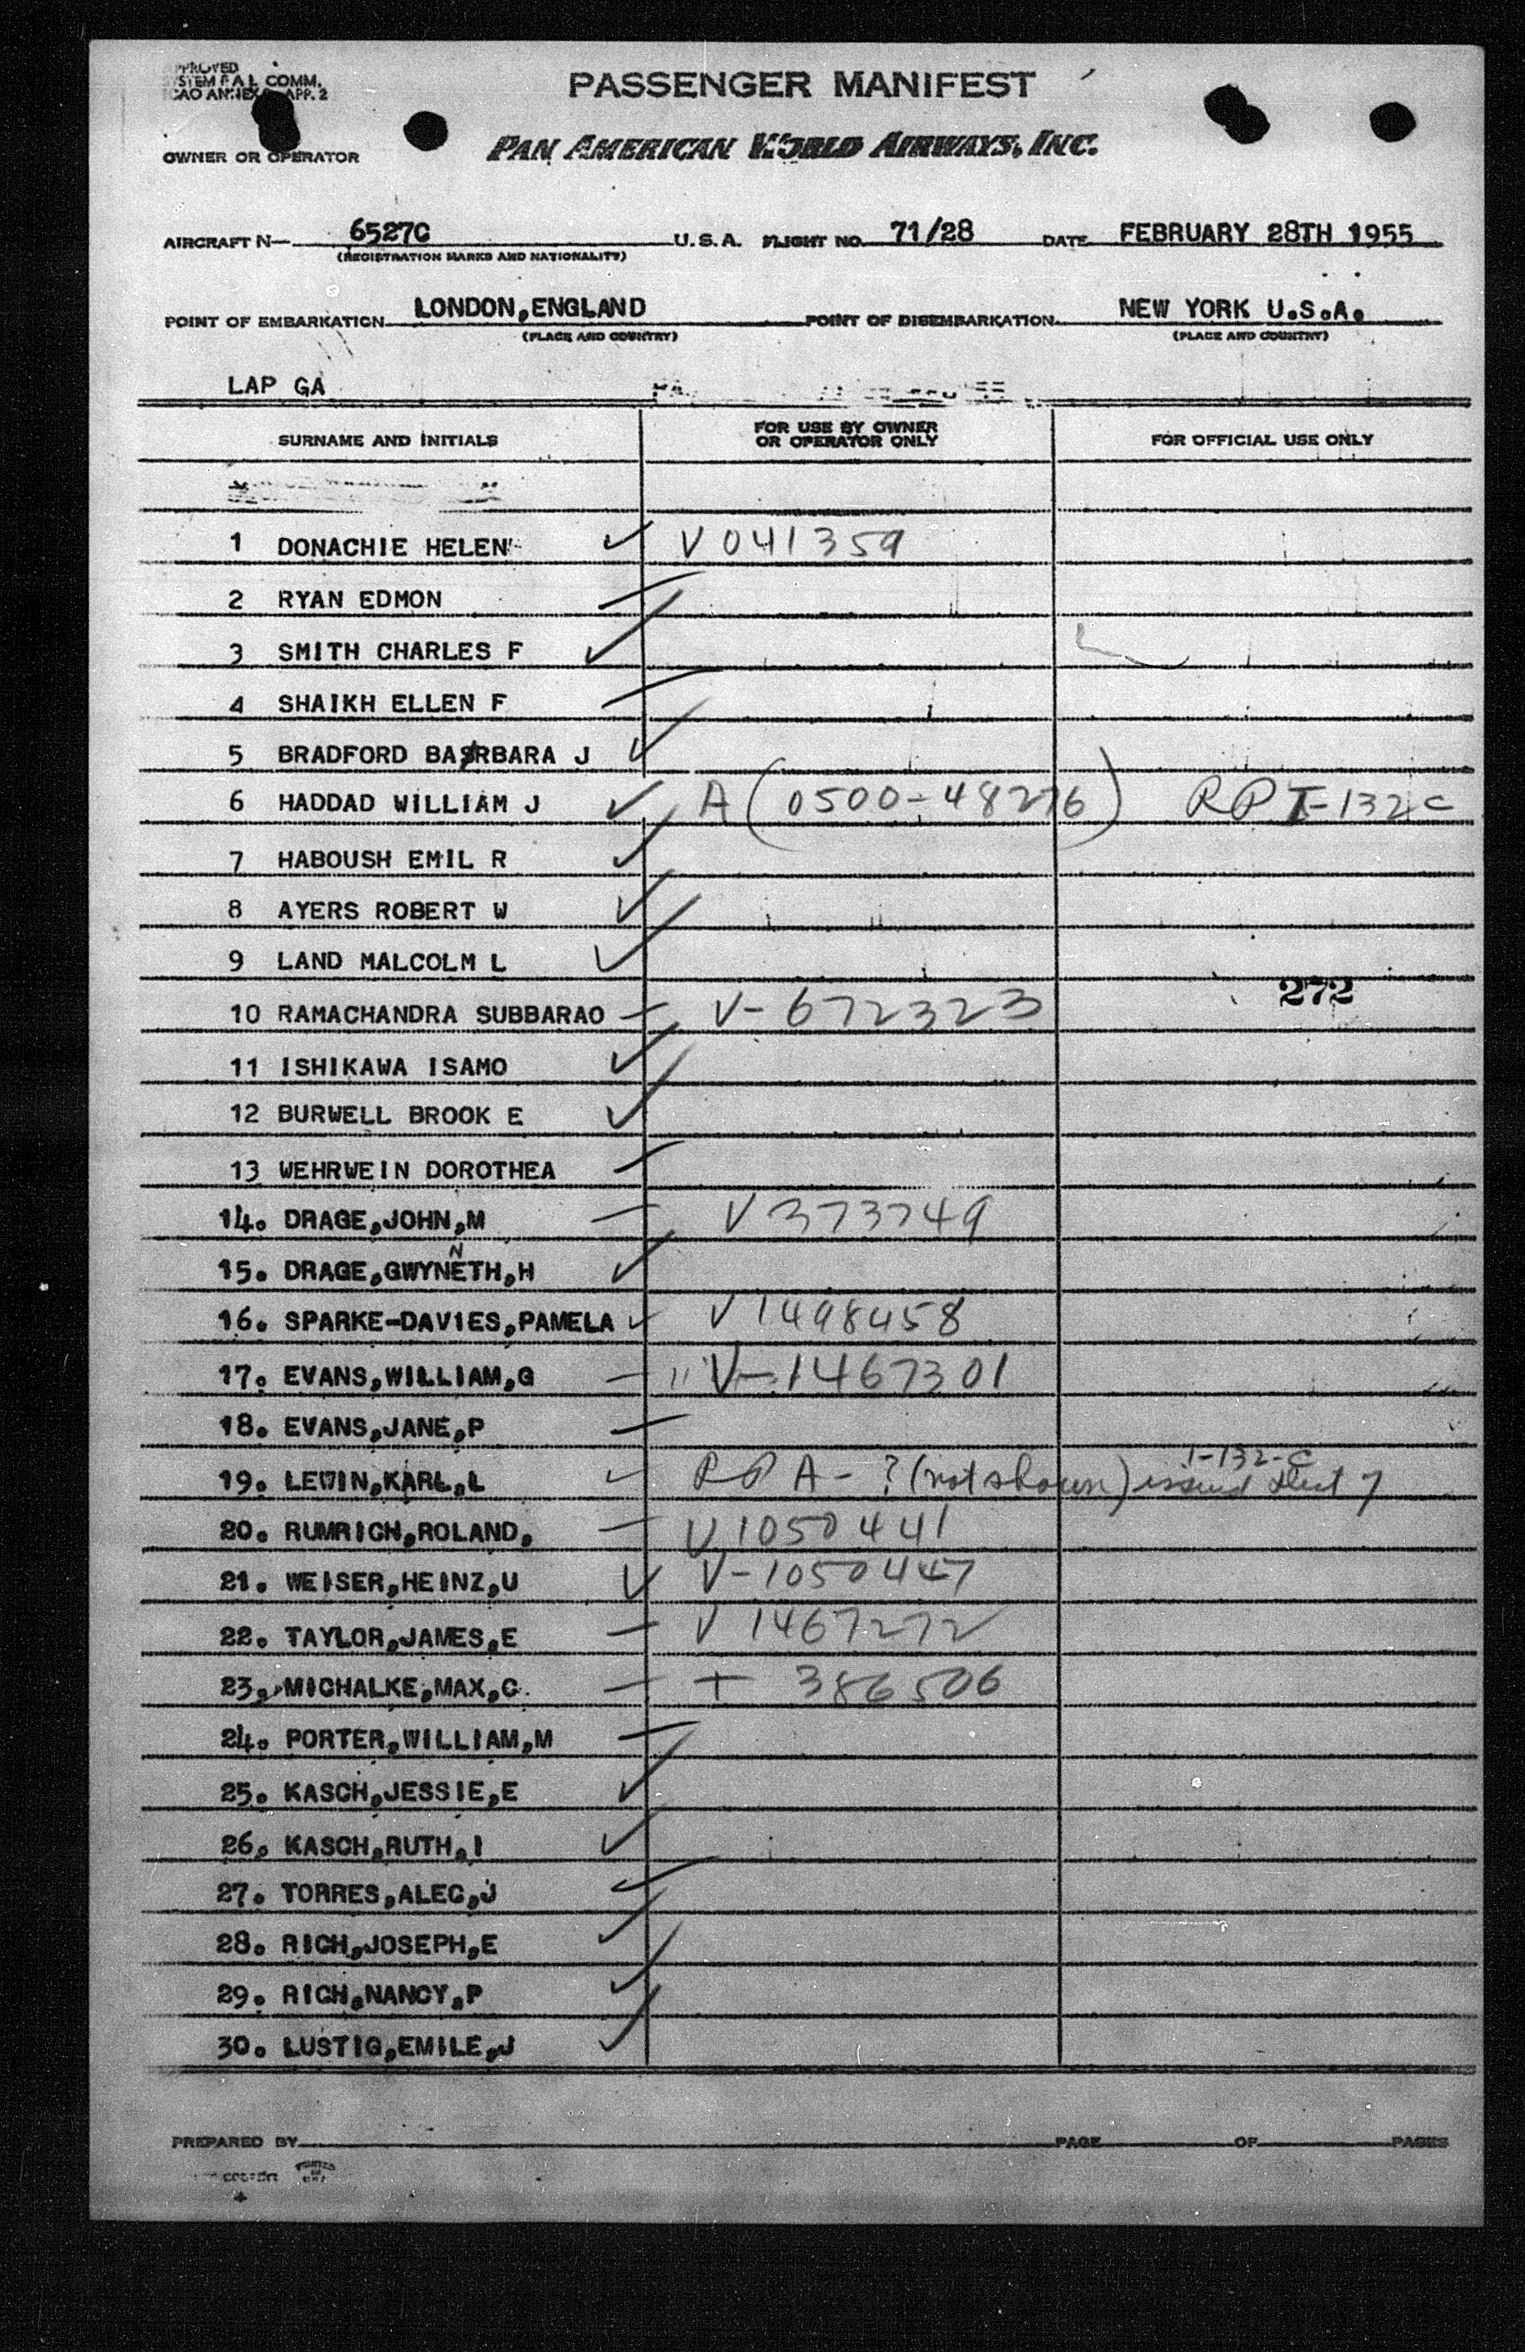 APPROVED
SYSTEM F A L COMM.
ICAO ANNEX APP. 2
PASSENGER MANIFEST
OWNER OR OPERATOR PAN AMERICAN WORLD AIRWAYS, INC.
AIRCRAFT N— 6527C U.S.A. FLIGHT NO. 71/28 DATE FEBRUARY 28TH 1955
(REGISTRATION MARKS AND NATIONALITY)
POINT OF EMBARKATION LONDON,ENGLAND POINT OF DISEMBARKATION NEW YORK U.S.A.
(PLACE AND COUNTRY) (PLACE AND COUNTRY)
LAP GA
SURNAME AND INITIALS FOR USE BY OWNER OR OPERATOR ONLY FOR OFFICIAL USE ONLY
1 DONACHIE HELEN ✓ V 041359
2 RYAN EDMON
3 SMITH CHARLES F ✓
4 SHAIKH ELLEN F
5 BRADFORD BASRBARA J ✓
6 HADDAD WILLIAM J ✓ A (0500-48276) RP I-132c
7 HABOUSH EMIL R ✓
8 AYERS ROBERT W ✓
9 LAND MALCOLM L ✓
272
10 RAMACHANDRA SUBBARAO — V-672323
11 ISHIKAWA ISAMO ✓
12 BURWELL BROOK E ✓
13 WEHRWEIN DOROTHEA
14. DRAGE,JOHN,M — V 373749
N
15. DRAGE,GWYNETH,H ✓
16. SPARKE-DAVIES,PAMELA ✓ V 1498458
17. EVANS,WILLIAM,G — " V-1467301
18. EVANS,JANE,P —
I-132-C
19. LEWIN,KARL,L ✓ RP A-? (not shown) issued
20. RUMRICH,ROLAND, — V 1050441
21. WEISER,HEINZ,U ✓ V-1050447
22. TAYLOR,JAMES,E — V 1467272
23. MICHALKE,MAX,C. — T 386506
24. PORTER,WILLIAM,M —
25. KASCH,JESSIE,E ✓
26. KASCH,RUTH,I ✓
27. TORRES,ALEC,J ✓
28. RICH,JOSEPH,E ✓
29. RICH,NANCY,P ✓
30. LUSTIG,EMILE,J ✓
PREPARED BY PAGE OF PAGES
PRINTED